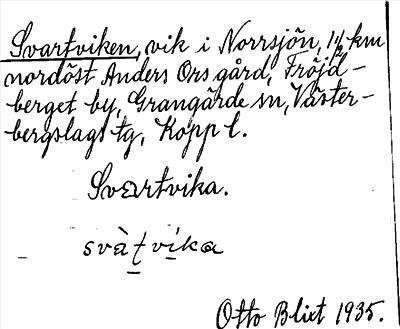 Svartviken, vik i Norrsjön, 1 1/2 km
nordöst Anders Ors gård, Fröjd-
berget by, Grangärde sn, Väster-
bergslags tg, Kopp l.
Svartvika.
svàṭvíka
Otto Blixt 1935.